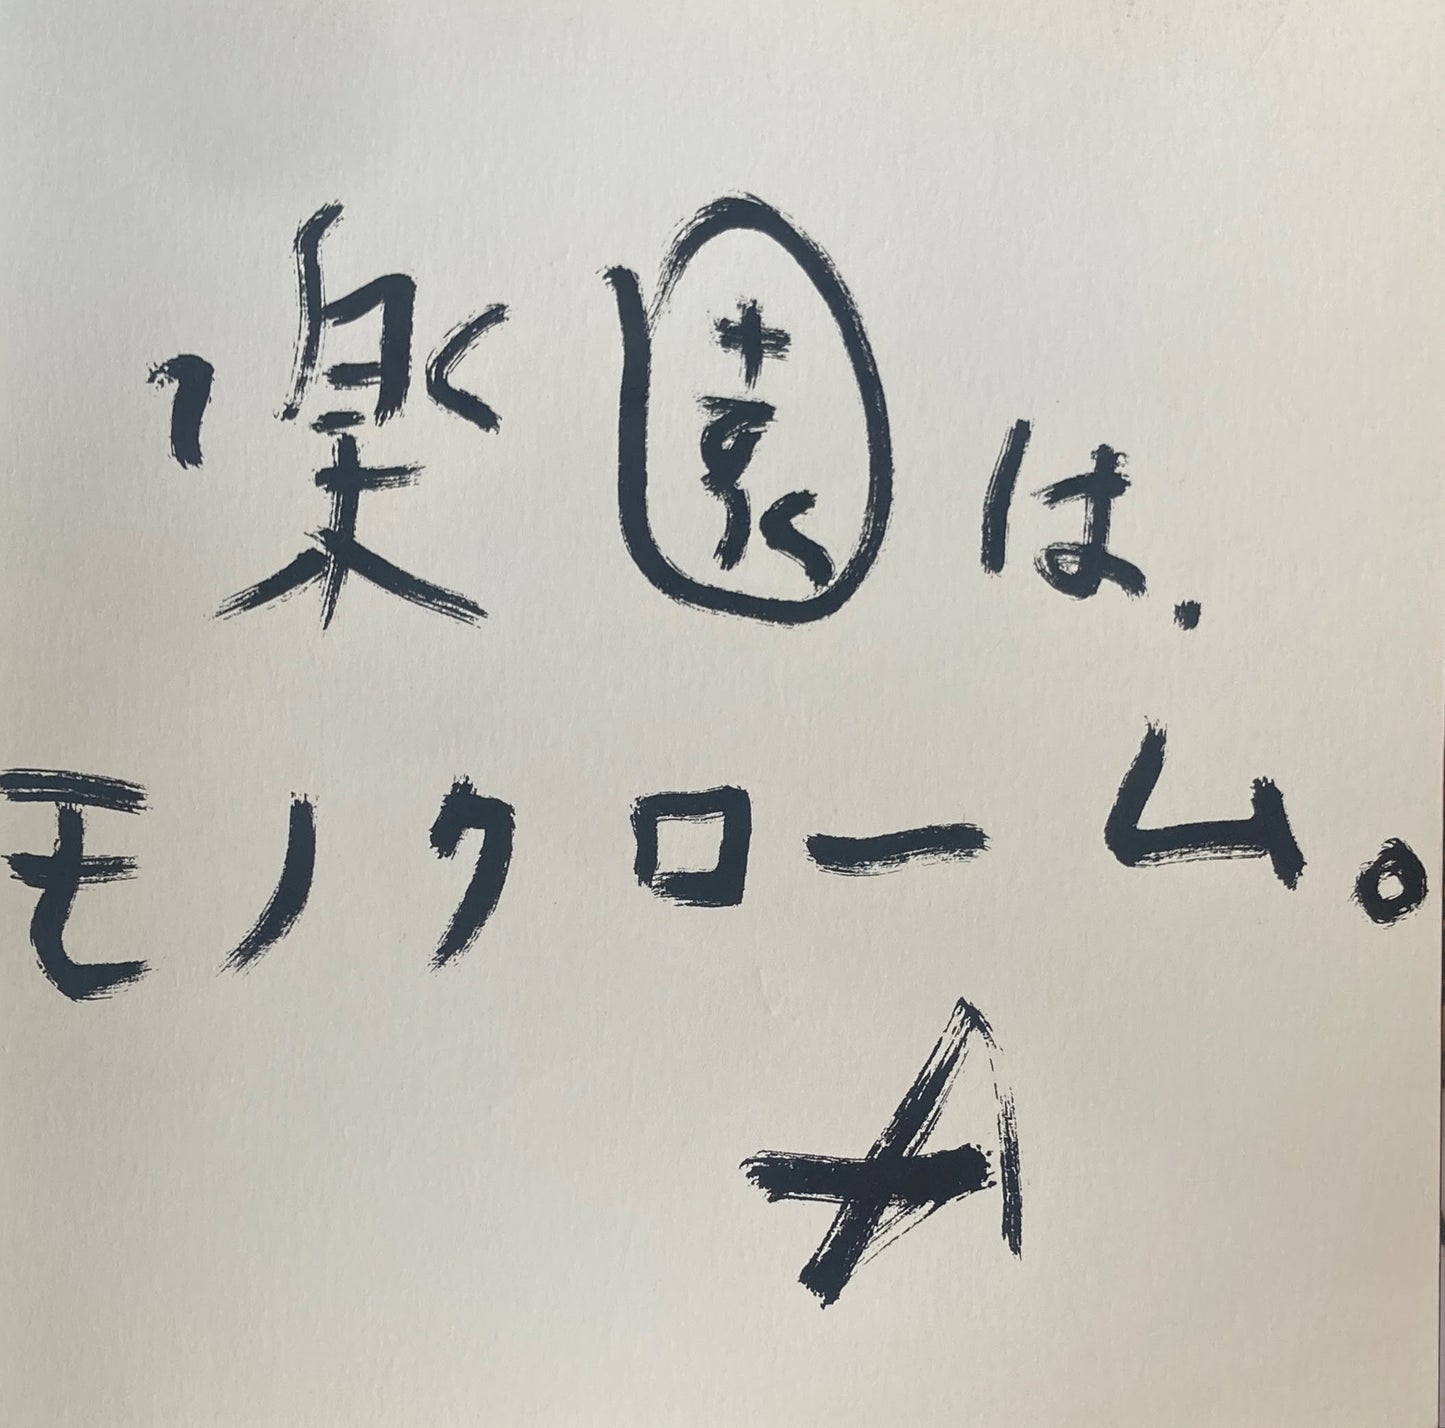 楽園は.
モノクローム。
A